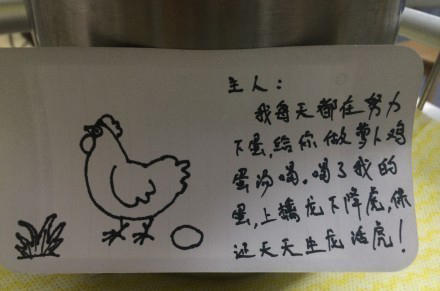 主人：
我每天都在努力
下蛋,给你做萝卜鸡
蛋汤喝。喝了我的
蛋,上擒龙下降虎,保
证天天生龙活虎！